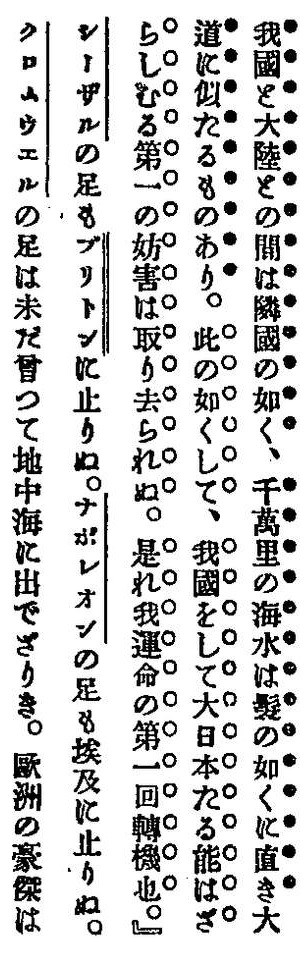 我國と大陸との間は隣國の如く、千萬里の海水は髮の如くに直き大
道に似たるものあり。此の如くして、我國をして大日本たる能はざ
らしむる第一の妨害は取り去られぬ。是れ我運命の第一回轉機也。』
シーザルの足もブリトンに止りぬ。ナポレオンの足も埃及に止りぬ。
クロムウエルの足は未だ曾つて地中海に出でざりき。歐洲の豪傑は